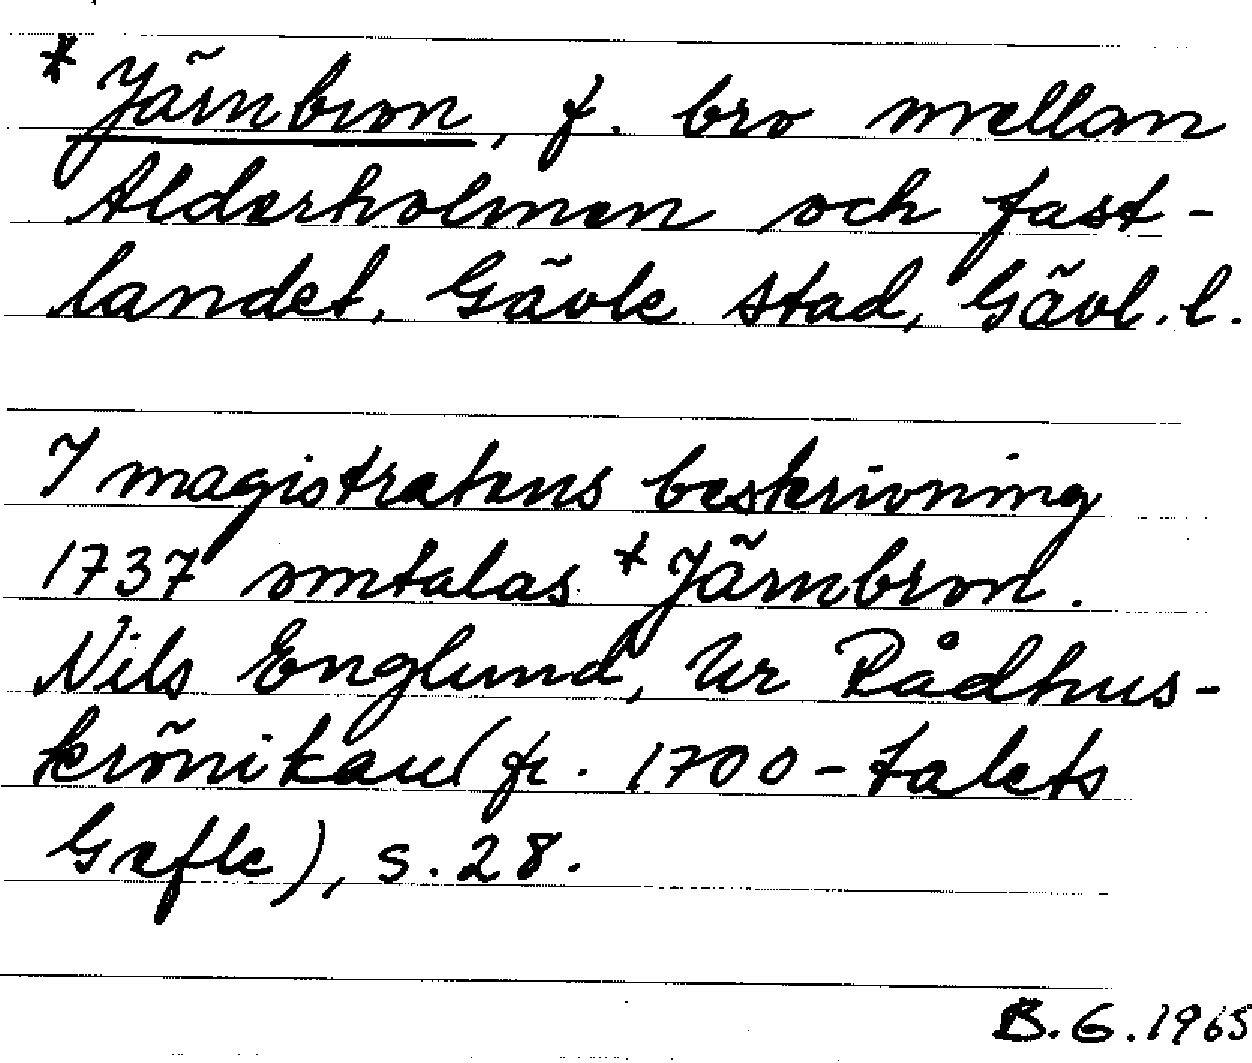 * Järnbron, f. bro mellan
Alderholmen och fast-
landet, Gävle stad, Gävl. l.
I magistratens beskrivning
1737 omtalas *Järnbron.
Nils Englund, Ur Rådhus-
krönikan (fr. 1700-talets
Gefle), s. 28.
B. G. 1965